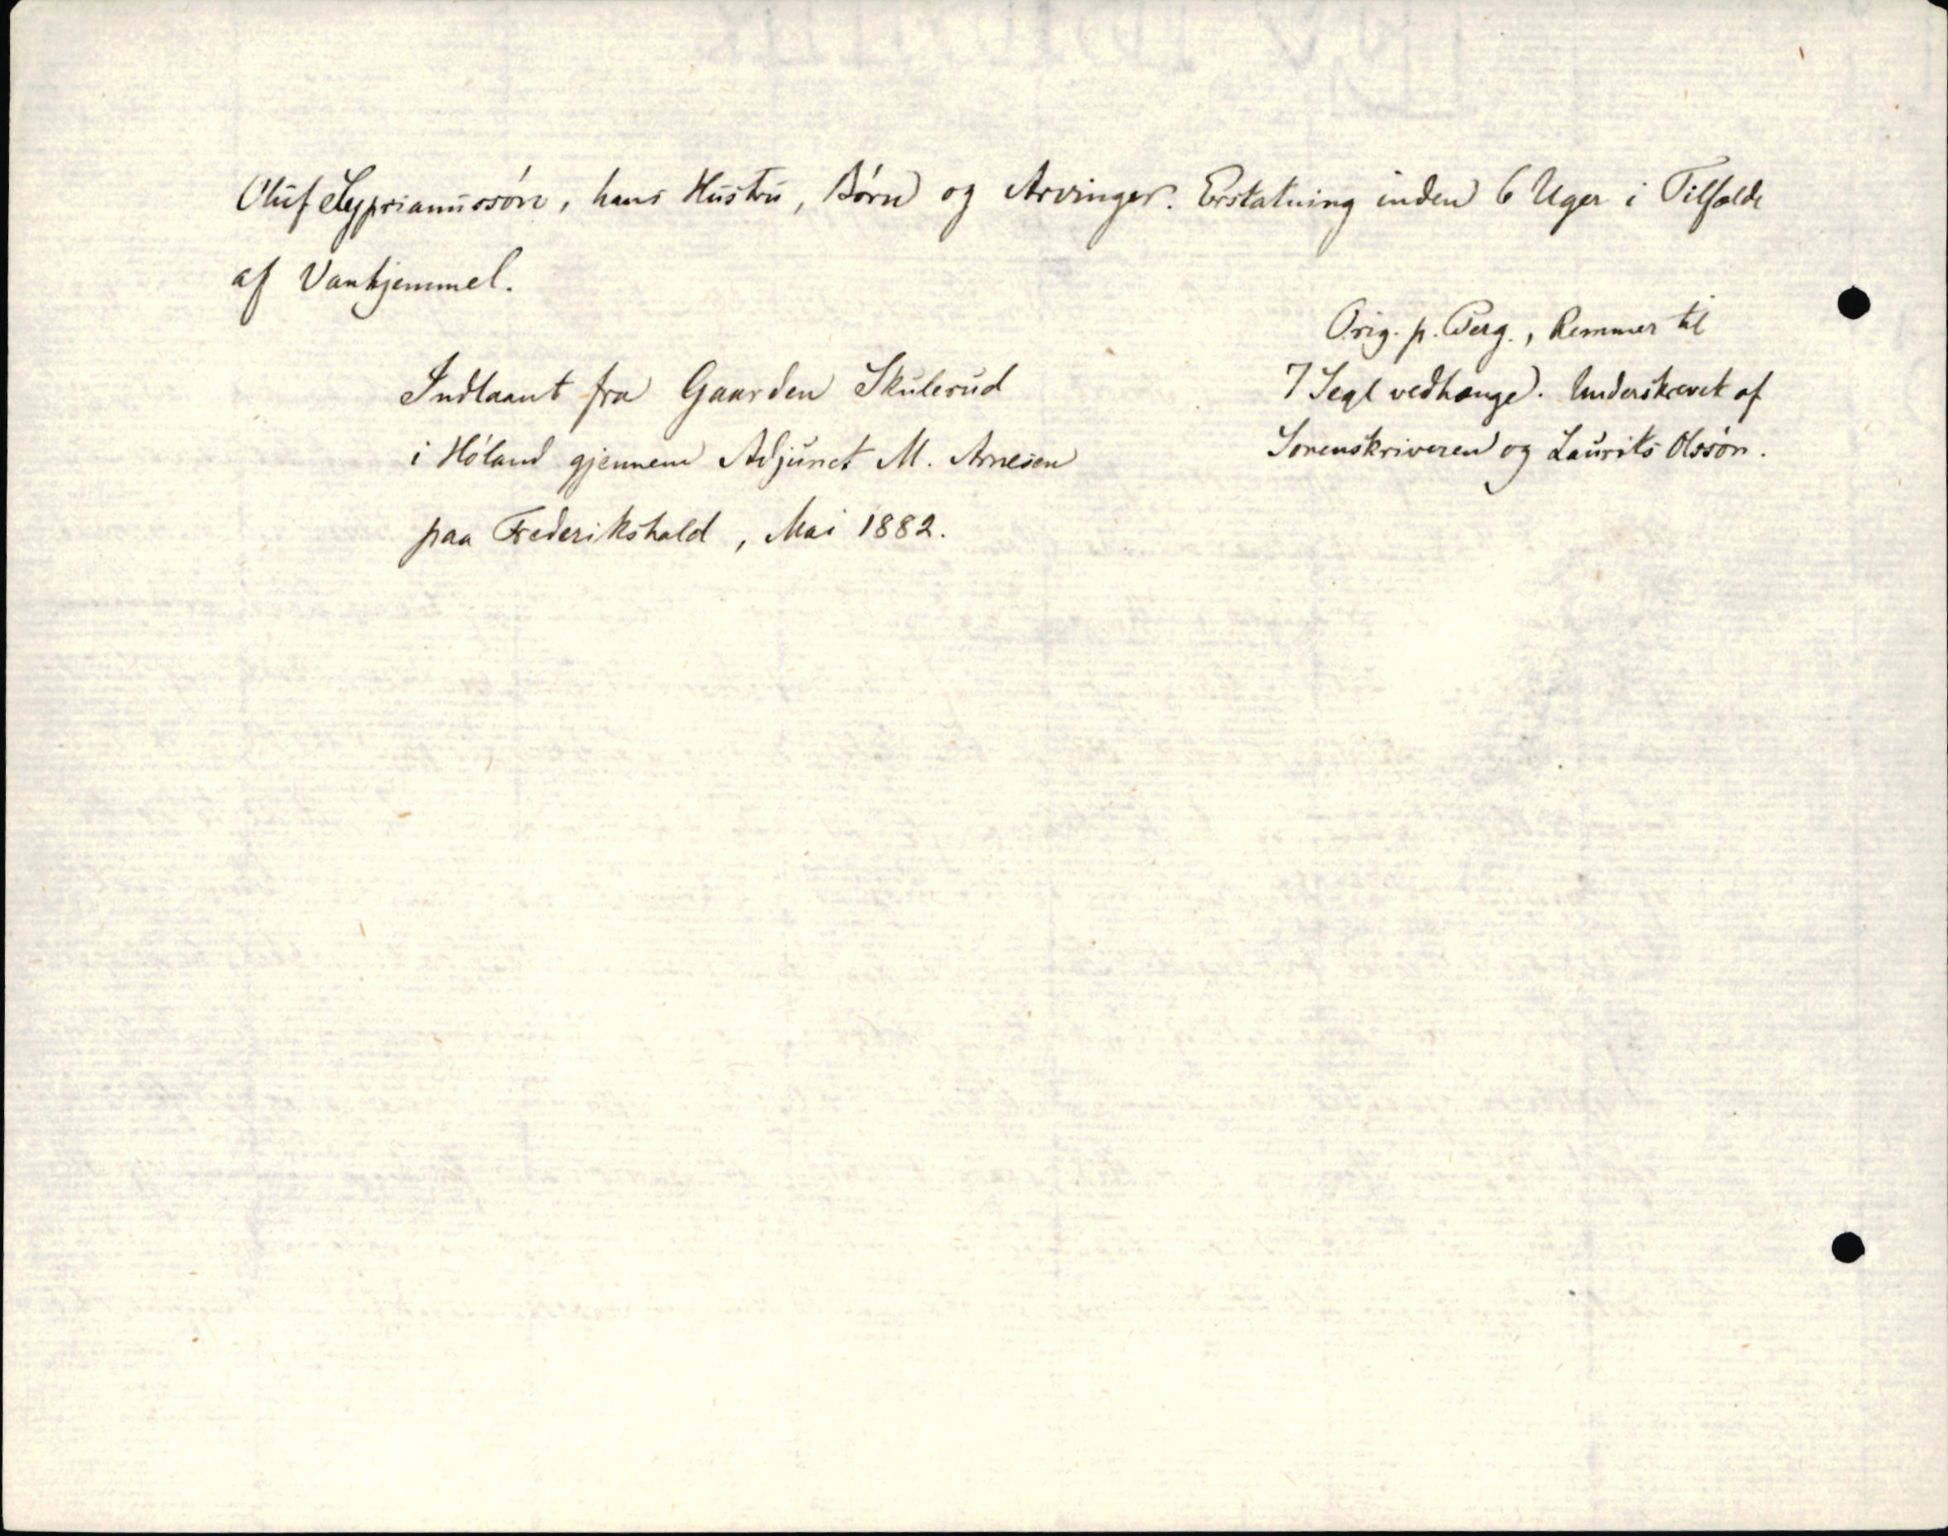 Oluf Sypriamussön, hans Hustru, Börn og Arvinger. Erstatning inden 6 Uger i Tilfælde
af Vanhjemmel.
Orig. p. Perg., Remmer til
7 Segl vedhænge. Underskrevet af
Sorenskriveren og Laurits Olssön.
Indlaant fra Gaarden Skulerud
i Höland gjennem Adjunct M. Arnesen
paa Frederikshald, Mai 1882.